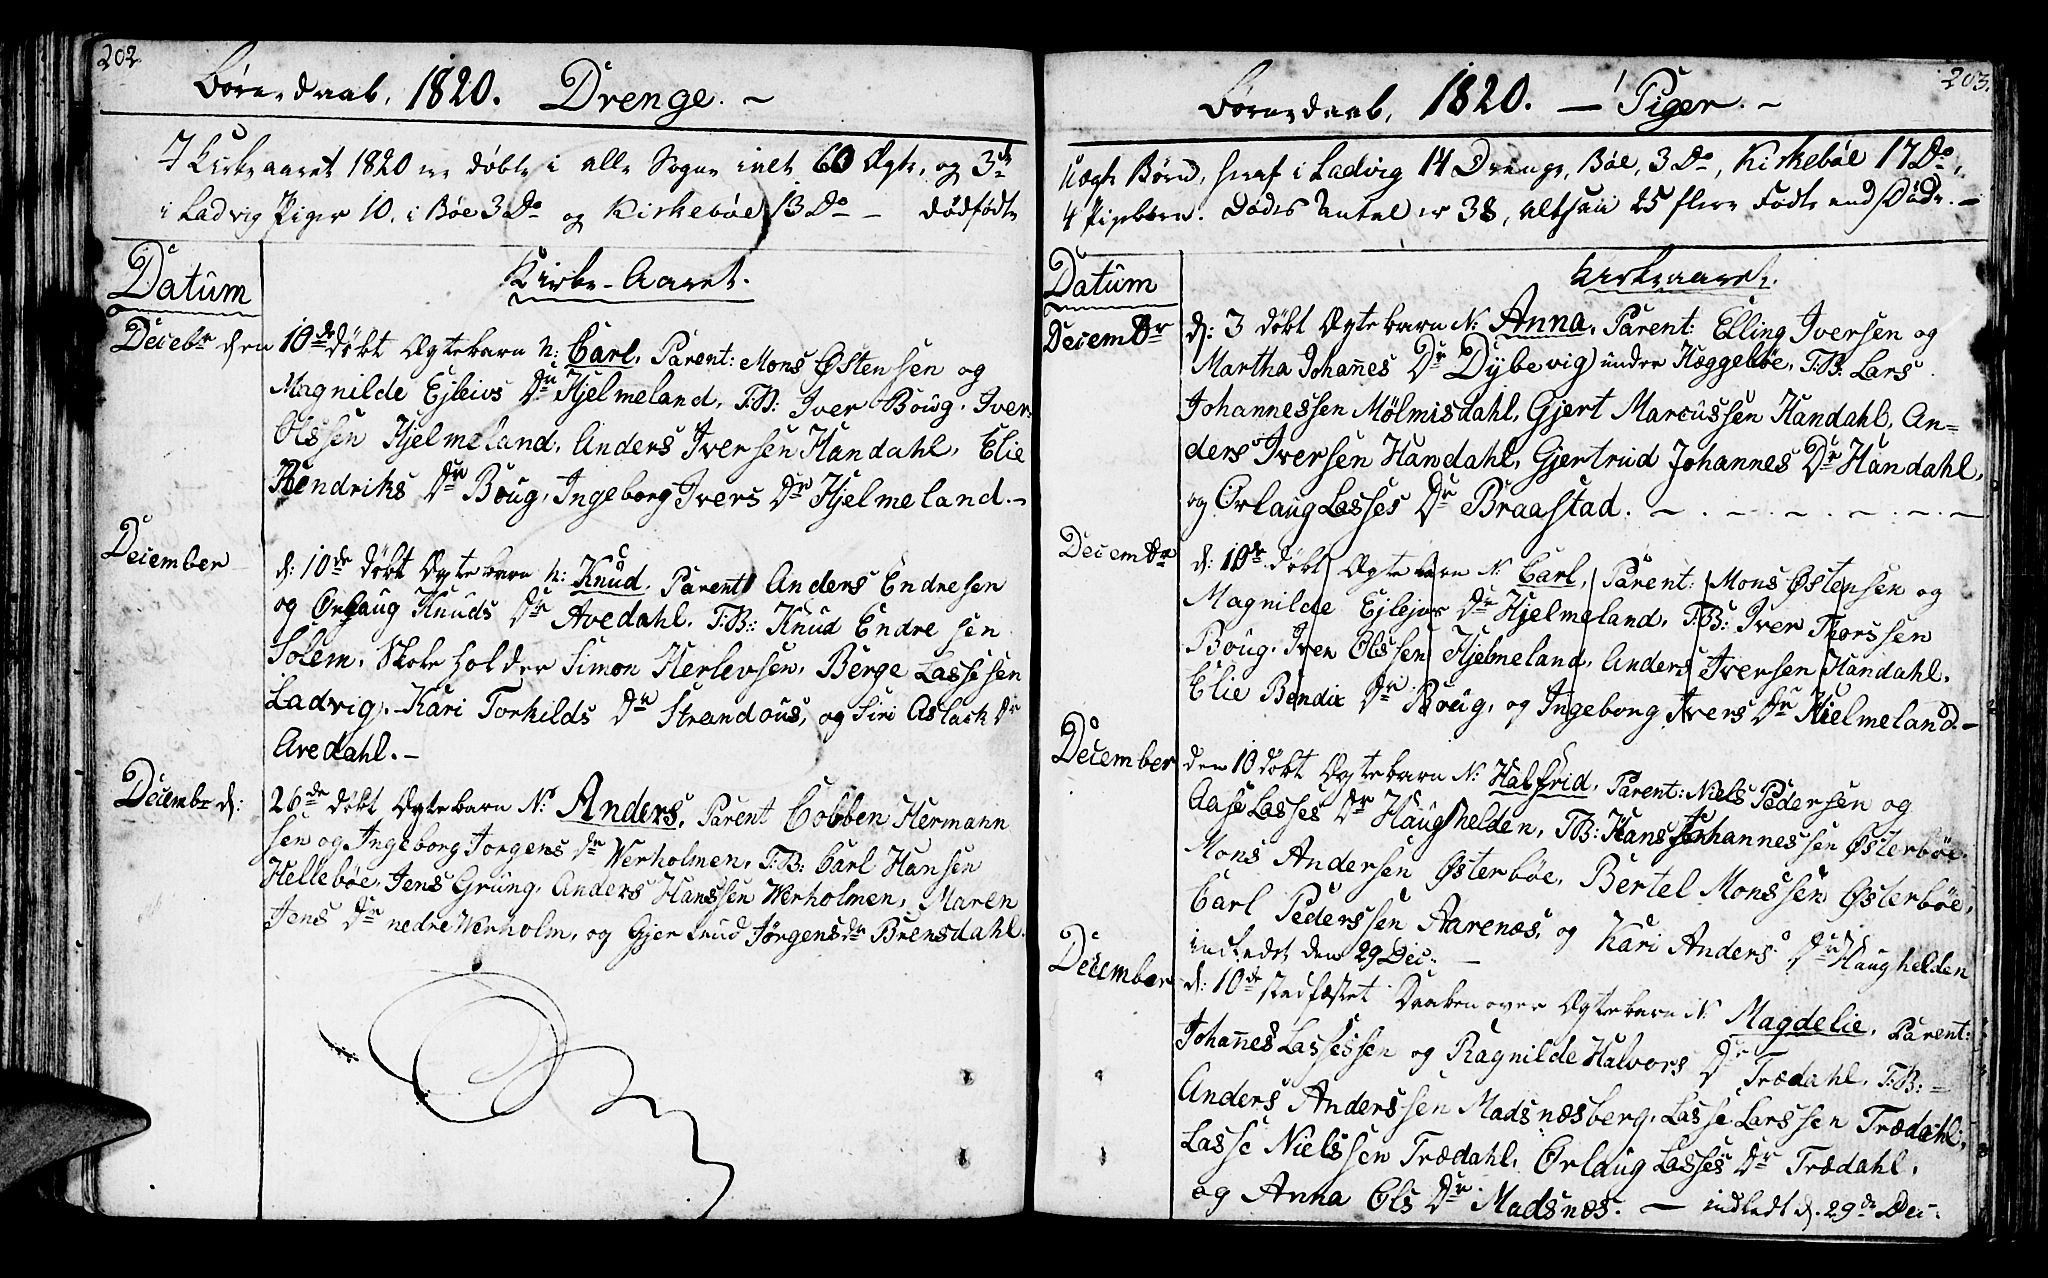 202.
Børnedaab. 1820. Drenge. -
I Kirkeaaret 1820 ere døbte i alle Sogne inal 60 Ægte, og 3de
i Ladvig Piger 10, i Bøe 3 Do og Kirkebøe 13 Do - dødfødte
Datum
Kirke-Aaret.
Decebr den 10de døbt Ægtebarn N: Carl, Parent: Mons Østensen og
Magnilde Ejleivs Dr Hjelmeland, T.B: Iver Boug, Iver
Olssen Hjelmeland, Anders Iversen Handahl, Elie
Hendriks Dr Boug, Ingeborg Ivers Dr Hjelmeland. -
December d: 10de døbt Ægtebarn N: Knud, Parent Anders Endresen
og Ørlaug Knuds Dr Avedahl. T.B.: Knud Endresen
Solem, Skoleholder Simon Herlevsen, Berge Lassesen
Ladvig. Kari Torkilds Dr Strandous, og Siri Aslach Dr
Avedahl. -
Decembr d: 26de døbt Ægtebarn N: Anders, Parent Cobben Hermann
sen og Ingeborg Jørgens dr Werholmen, T.B: Carl Hansen
Hellebøe, Jens Grüng, Anders Hanssen Werholmen, Maren
Jens Dr nedre Werholm, og Gjertrud Jørgens dr Brensdahl.
203.
Børnedaab, 1820. — Piger. -
Uægte Børn, heraf i Ladvig 14 Drenge, Bøe, 3 Do, Kirkebøe 17 Do,
4 Pigebørn. Dødes Antal er 38, altsaa 25 flere Fødte end Døde. -
Datum
Kirkeaaret.
Decembr d: 3 døbt Ægtebarn N: Anna, Parent: Elling Iversen og
Martha Johanes Dr Dybevig under Hæggebøe, T.B. Lars
Johannessen Mølmisdahl, Gjert Marcussen Handahl, An=
ders Iversen Handahl, Gjertrud Johannes Dr Handahl,
og Ørlaug Lasses Dr Braastad. - . - . - . - . -
Decembr d: 10de døbt Ægtebarn N: Carl, Parent: Mons Østensen og
Magnilde Ejlejvs Dr Hjelmeland, T.B: Iver Thorssen
Boug, Iver Olssen Hjelmeland, Anders Iversen Handahl,
Elie Bendix Dr Boug, og Ingeborg Ivers Dr Hielmeland -
December den 10 døbt Ægtebarn N: Halfrid, Parent: Niels Pedersen og
Aase Lasses Dr Haughelden, T.B: Hans Johannessen Østerbøe,
Mons Andersen Østerbøe, Bertel Monssen Østerbøe,
Carl Pederssen Aarenæs, og Kari Anders Dr Haughelden
indledet den 29 Dec: -
December d: 10de stadfæstet Daaben over Ægtebarn N: Magdelie, Parent:
Johanes Lassessen og Ragnilde Halvors Dr Trædahl, T.B: -
Anders Anderssen Madsnæsberg, Lasse Larssen Trædahl,
Lasse Nielssen Trædahl, Ørlaug Lasses Dr Trædahl,
og Anna Ols Dr Madsnæs. — indledt d. 29de Dec: